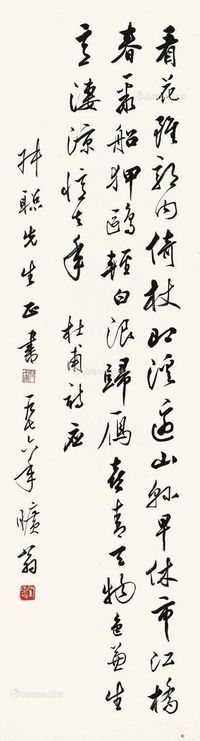 看花雖郭內倚杖即溪邊山縣早休市江橋
春聚船狎鷗輕白浪歸雁喜青天物色兼生
意淒涼憶去年 杜甫詩應
聰先生正書 一九七六年 曠翁